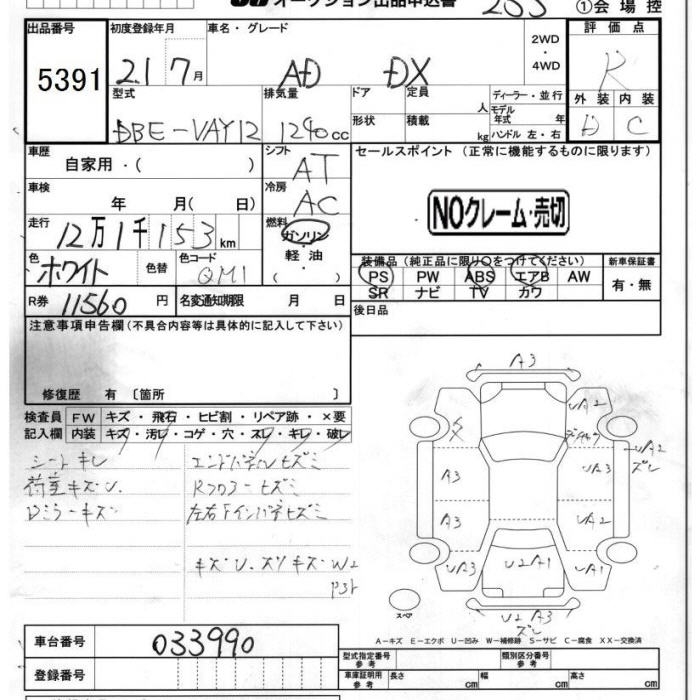 オークション出品申込書 ①会場控
出品番号 初度登録年月 車名・グレード 2WD ・ 4WD 評価点
5391 21 7月 AD DX R
型式 排気量 ドア 定員 人 ディーラー・並行 外装 内装
DBE-VAY12 1240cc 形状 積載 kg モデル年式 年式 ハンドル 左・右 D C
車歴 自家用・( ) シフト AT セールスポイント (正常に機能するものに限ります)
車検 年 月( 日) 冷房 AC NOクレーム・売切
走行 12万1千153km 燃料 ガソリン・軽油・( )
装備品 (純正品に限り○をつけてください) 新車保証書
色 ホワイト 色替 色コード QM1 PS PW ABS エアB AW 有・無
SR ナビ TV カワ
R券 11560円 名変通知期限 月 日 後日品
注意事項申告欄(不具合内容等は具体的に記入して下さい)
修復歴 有 〔箇所 〕
検査員 FW キズ・飛石・ヒビ割・リペア跡・×要
記入欄 内装 キズ・汚レ・コゲ・穴・スレ・キレ・破レ
シートキレ エンドパネルヒズミ
荷室キズU. Rフロアーヒズミ
Dミラーキズ 左右Fインパネヒズミ
キズU.スリキズ W2
A3
UA2
UA2
ズレ
A3 UA3
A3 UA2
UA3 U2A1 UA1
スペア U2 A3
ズレ
A-キズ E-エクボ U-凹み W-補修跡 S-サビ C-腐食 XX-交換済
車台番号 033990
登録番号
型式指定番号 参考 類別区分番号 参考
車庫証明用 参考 長さ cm 幅 cm 高さ cm